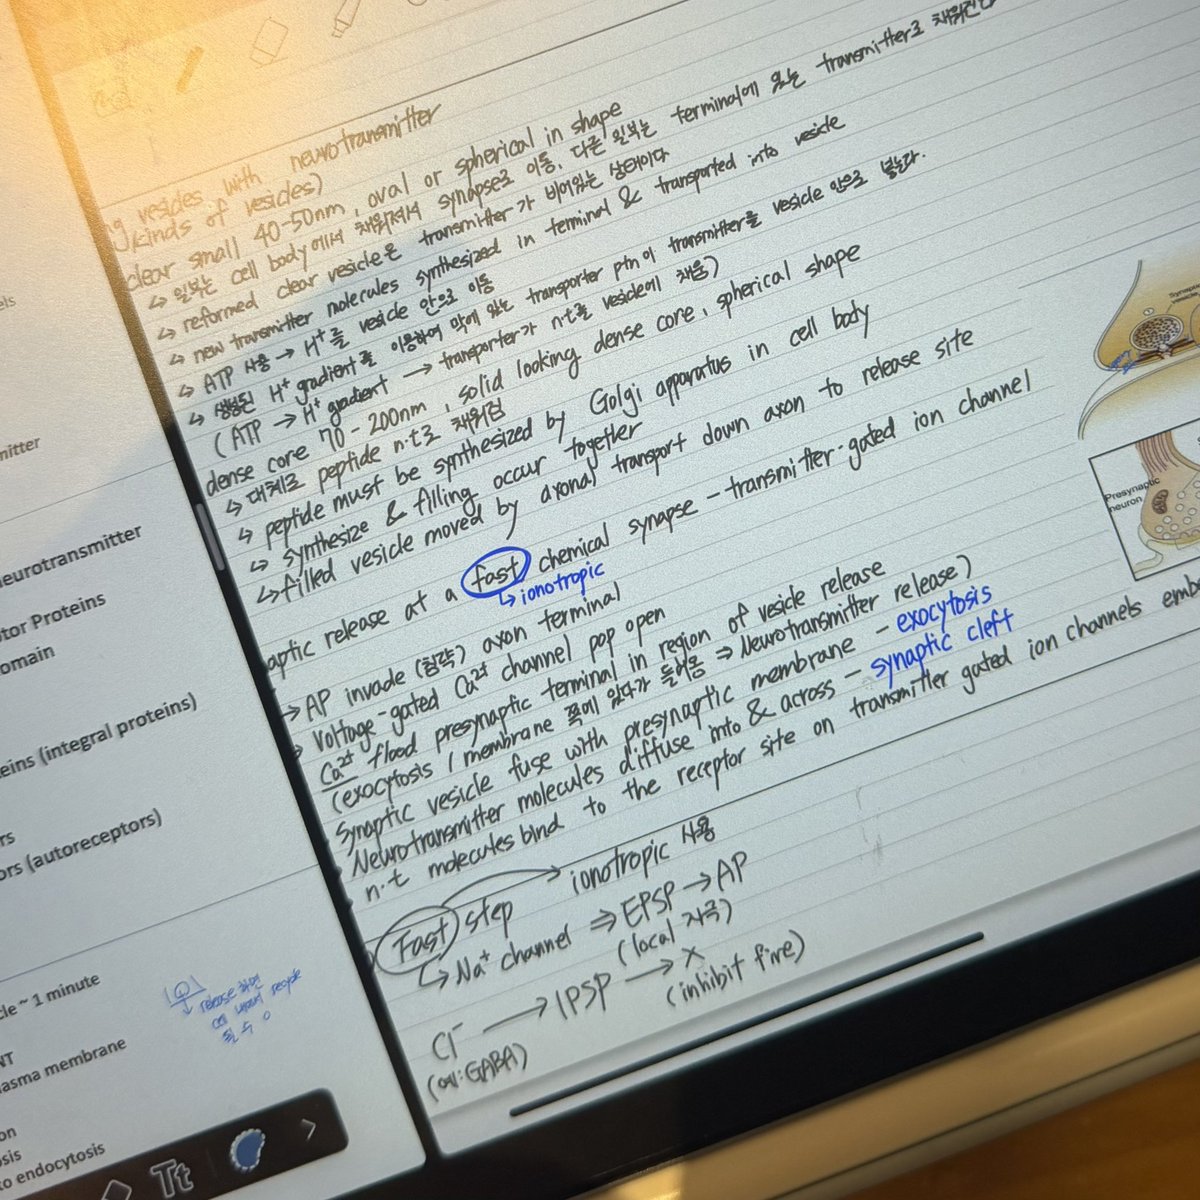 vesicles with neurotransmitter
kinds of vesicles)
clear small 40-50nm, oval or spherical in shape
↳ 일부는 cell body에서 채워져서 synapse로 이동. 다른 일부는 terminal에 있는 transmitter로 채워진다
↳ reformed clear vesicle은 transmitter가 비어있는 상태이다
↳ new transmitter molecules synthesized in terminal & transported into vesicle
↳ ATP 사용 → H⁺를 vesicle 안으로 이동
↳ 생성된 H⁺ gradient를 이용하여 막에 있는 transporter ptn이 transmitter를 vesicle 안으로 넣는다.
(ATP → H⁺ gradient → transporter가 n.t를 vesicle에 채움)
dense core 70-200nm, solid looking dense core, spherical shape
↳ 대체로 peptide n.t로 채워짐
↳ peptide must be synthesized by Golgi apparatus in cell body
↳ synthesize & filling occur together
↳ filled vesicle moved by axonal transport down axon to release site
aptic release at a fast chemical synapse - transmitter-gated ion channel
↳ ionotropic
→ AP invade (침략) axon terminal
voltage-gated Ca²⁺ channel pop open
Ca²⁺ flood presynaptic terminal in region of vesicle release
(exocytosis / membrane 쪽에 있다가 들어옴 ⇒ Neurotransmitter release)
Synaptic vesicle fuse with presynaptic membrane - exocytosis
Neurotransmitter molecules diffuse into & across - synaptic cleft
n.t molecules bind to the receptor site on transmitter gated ion channels embe
Fast step → ionotropic 사용
↳ Na⁺ channel ⇒ EPSP → AP
(local 자극)
Cl⁻ → IPSP → X
(inhibit fire)
(ex: GABA)
Presynaptic
neuron
els
mitter
eurotransmitter
tor Proteins
omain
eins (integral proteins)
rs
ors (autoreceptors)
cle ~ 1 minute
NT
asma membrane
on
osis
to endocytosis
release하면
cell
recycle
될 수 o
Tt